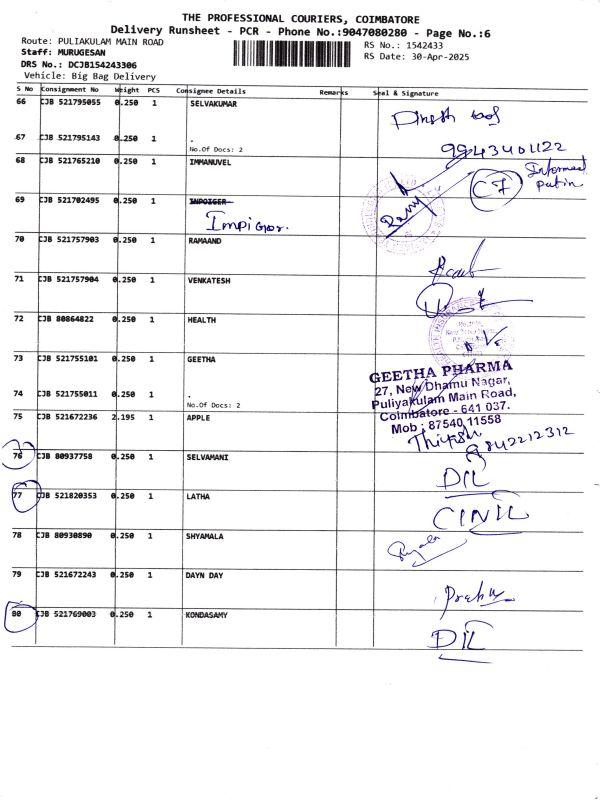 THE PROFESSIONAL COURIERS, COIMBATORE
Delivery Runsheet - PCR - Phone No.:9047080280 - Page No.:6
Route: PULIAKULAM MAIN ROAD
RS No.: 1542433
Staff: MURUGESAN
RS Date: 30-Apr-2025
DRS No.: DCJB154243306
Vehicle: Big Bag Delivery
S No Consignment No Weight PCS Consignee Details Remarks Seal & Signature
66 CJB 521795055 0.250 1 SELVAKUMAR
Dinesh
67 CJB 521795143 0.250 1 .
No.Of Docs: 2
9943401122
68 CJB 521765210 0.250 1 IMMANUVEL
69 CJB 521702495 0.250 1 INPOIGER
Impiger.
70 CJB 521757903 0.250 1 RAMAAND
71 CJB 521757904 0.250 1 VENKATESH
72 CJB 80864822 0.250 1 HEALTH
73 CJB 521755101 0.250 1 GEETHA
GEETHA PHARMA
27, New Dhamu Nagar,
Puliyakulam Main Road,
Coimbatore - 641 037.
Mob : 87540 11558
74 CJB 521755011 0.250 1 .
No.Of Docs: 2
75 CJB 521672236 2.195 1 APPLE
9842212312
76 CJB 80937758 0.250 1 SELVAMANI
DIL
77 CJB 521820353 0.250 1 LATHA
CINIL
78 CJB 80930890 0.250 1 SHYAMALA
79 CJB 521672243 0.250 1 DAYN DAY
Prabhu
80 CJB 521769003 0.250 1 KONDASAMY
DIL